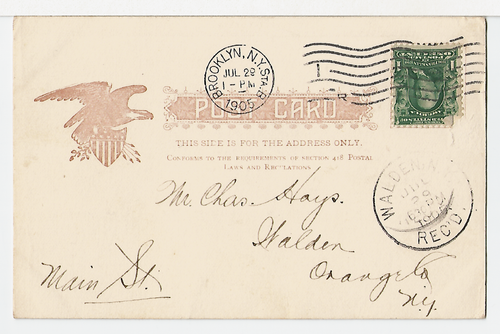 BROOKLYN, N.Y. STA. B.
JUL 29
1-PM
1905
1
R
POST CARD
THIS SIDE IS FOR THE ADDRESS ONLY.
CONFORMS TO THE REQUIREMENTS OF SECTION 418 POSTAL
LAWS AND REGULATIONS
WALDEN,
REC'D
Mr. Chas. Hays.
Walden
Orange Co
N.Y.
Main St.